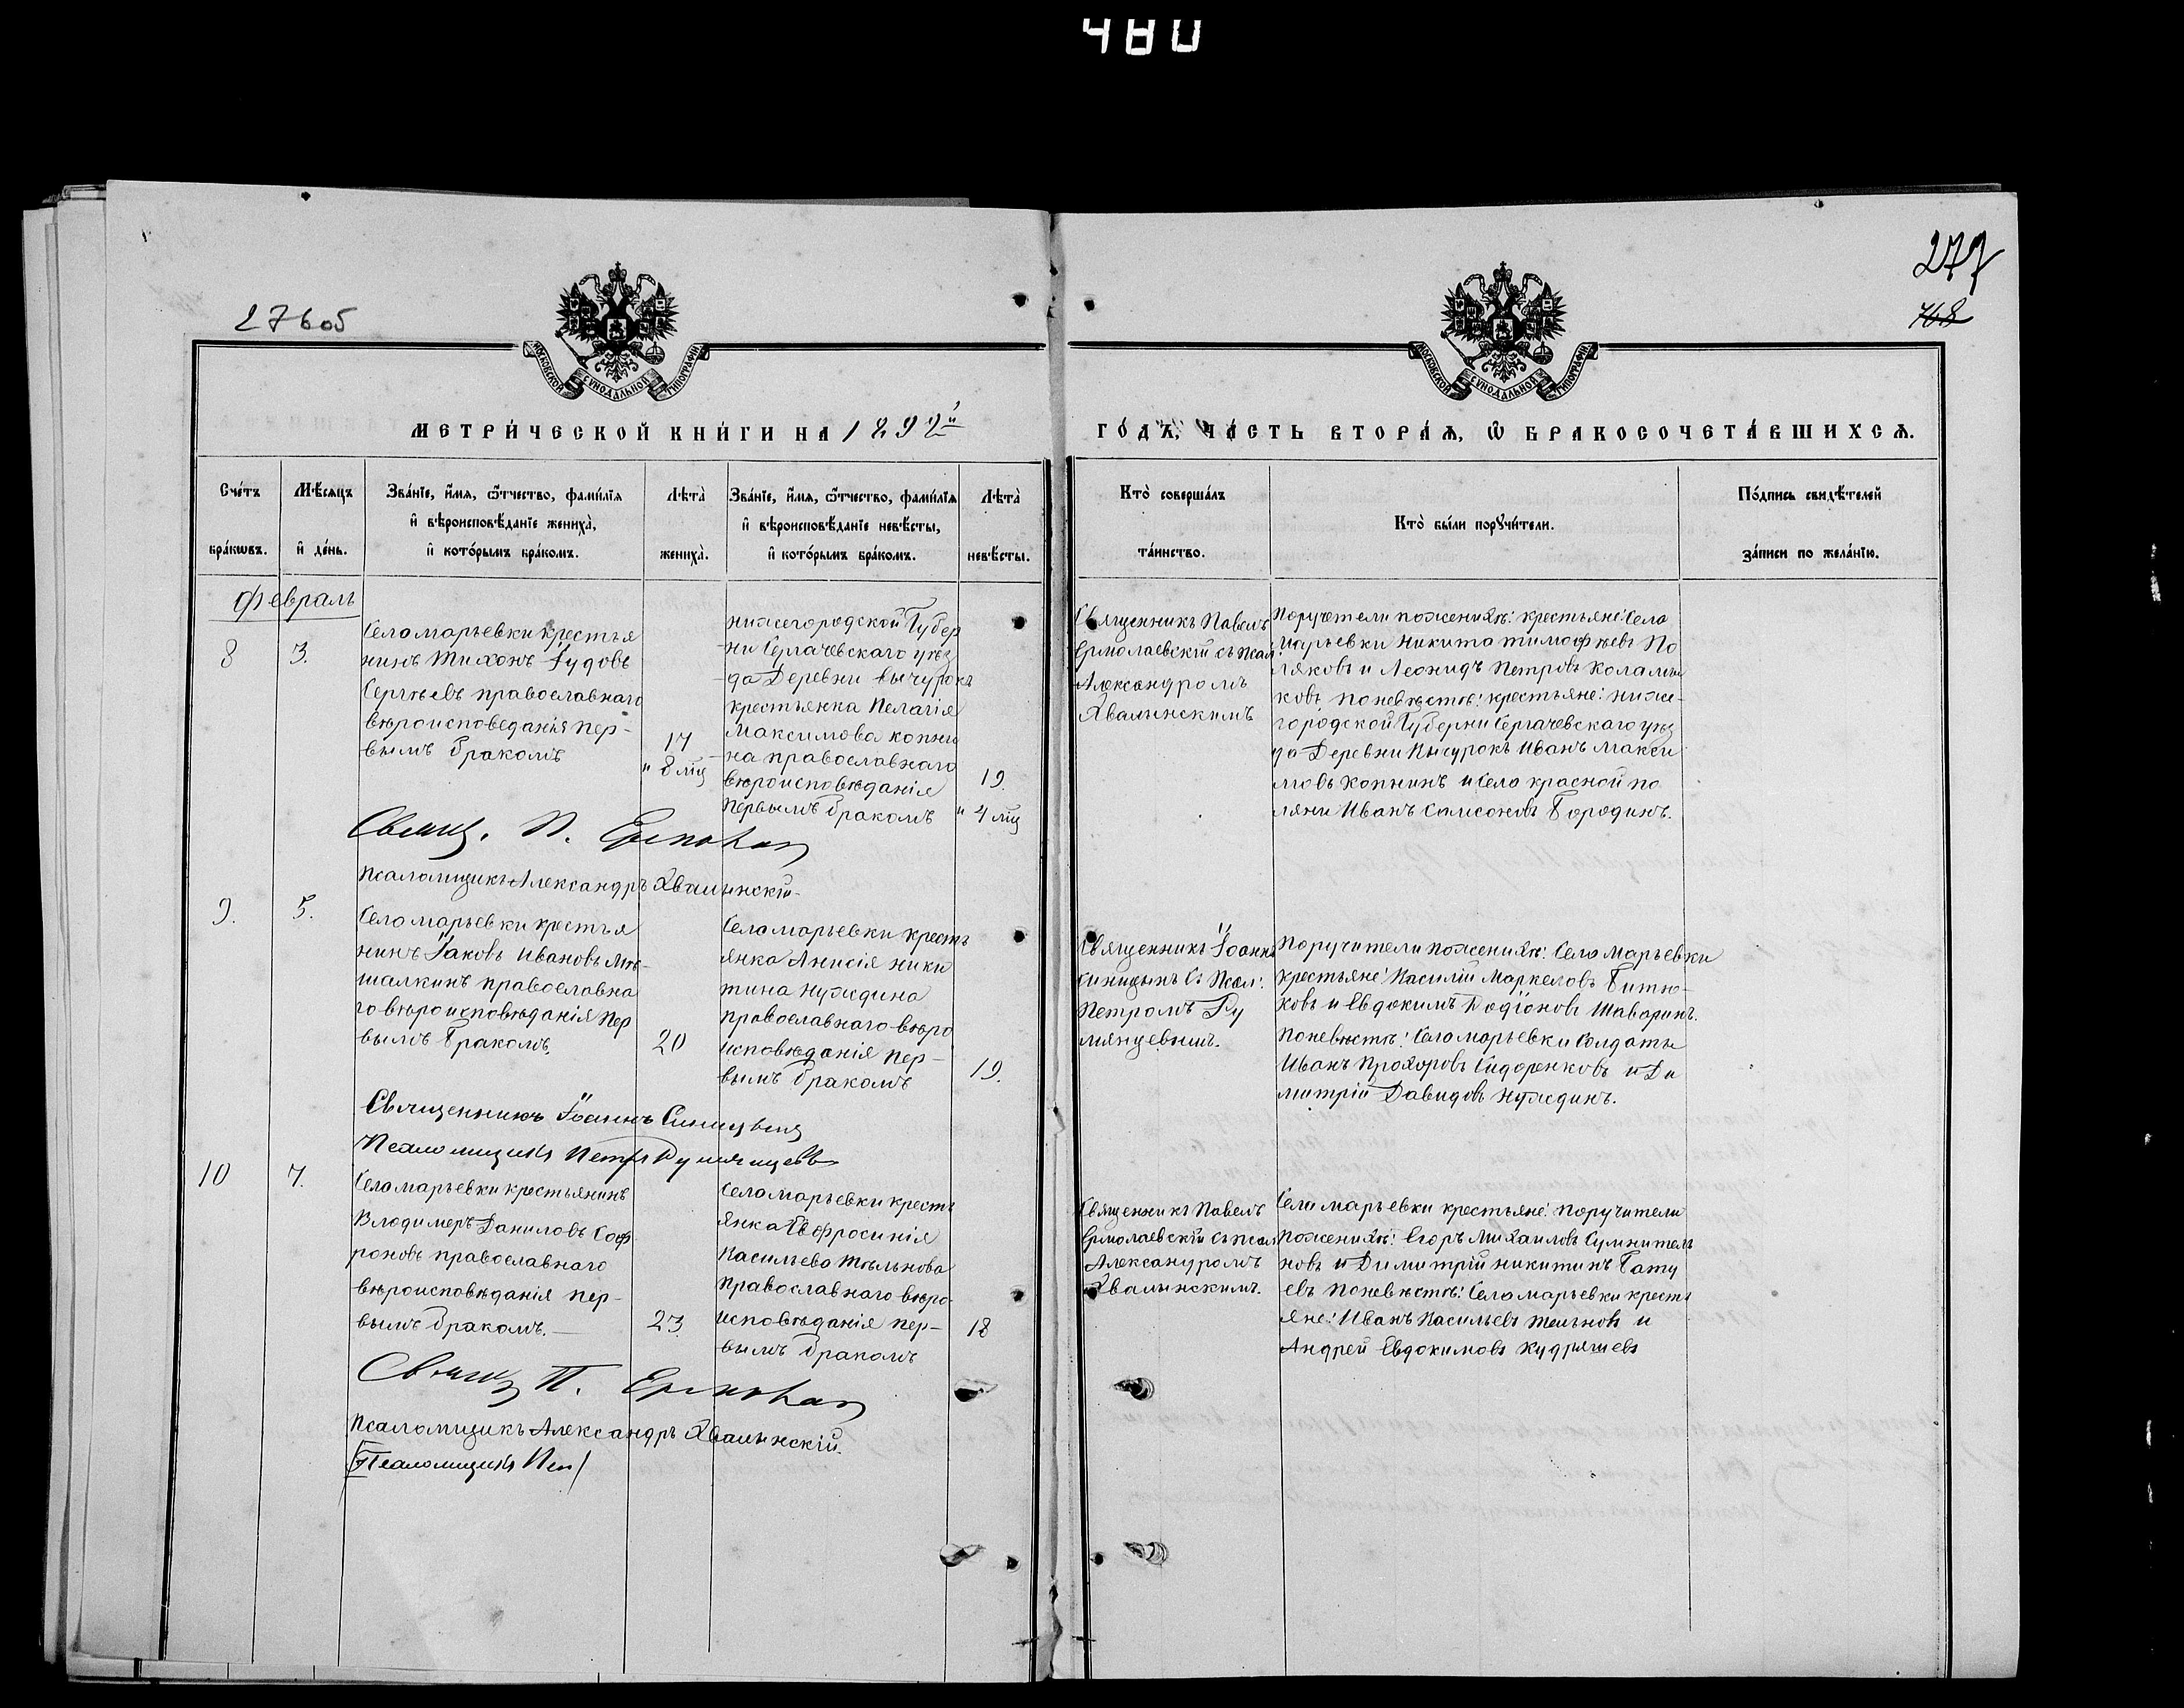 480
276 об
277
768
МОСКОВСКОЙ СѴНОДАЛЬНОЙ ТИПОГРАФІИ
МОСКОВСКОЙ СѴНОДАЛЬНОЙ ТИПОГРАФІИ
МЕТРИ́ЧЕСКОЙ КНИ́ГИ НА 1892й
ГО́ДЪ, ЧА́СТЬ ВТОРА́Ѧ, Ѡ҆ БРАКОСОЧЕТА́ВШИХСѦ.
Сче́тъ бра́кѡвъ.
Мѣ́сѧцъ и҆ де́нь.
Зва́нїе, и҆́мѧ, ѻ҆́тчество, фами́лїѧ
и҆ вѣроисповѣ́данїе жениха̀,
и҆ кото́рымъ бра́комъ.
Лѣта̀ жениха̀.
Зва́нїе, и҆́мѧ, ѻ҆́тчество, фами́лїѧ
и҆ вѣроисповѣ́данїе невѣ́сты,
и҆ кото́рымъ бра́комъ.
Лѣта̀ невѣ́сты.
Кто̀ соверша́лъ
та́инство.
Кто̀ бы́ли порꙋчи́тели.
По́дпись свидѣ́телей
за́писи по жела́нїю.
Февраль
8
3.
Села марьевки крестья
нинъ Тихонъ Іудовъ
Сергѣевъ православнаго
вѣроисповеданія пер-
вымъ бракомъ
17
" 8 мц
нижегородской Губер
ни Сергачевскаго уѣз
да Деревни Вычурокъ
крестьянка Пелагія
Максимова копни
на православнаго
вѣроисповѣданія
первымъ бракомъ
19.
" 4 мц
Священникъ Павелъ
Ермолаевскій съ Псал:
Александромъ
Хвалынскимъ
Поручители по женихѣ: крестьяне: Села
Марьевки Никита тимофѣевъ По
ляковъ и Леонидъ Петровъ
ковъ по невѣстѣ: крестьяне: ниже-
городской Губерни Сергачевскаго уѣз
да Деревни Пычурокъ Иванъ Макси
мовъ Копнинъ и Села красной по
ляни Иванъ Самсоновъ Бородинъ.
Свящ. П.
Псаломщикъ Александръ Хвалынскій
9.
5.
Села марьевки крестья
нинъ Іаковъ Ивановъ Мѣ-
шалкинъ православна
го вѣроисповѣданія пер
вымъ бракомъ.
20
Села марьевки кресть
янка Анисія ники
тина Нуждина
православнаго вѣро
исповѣданія пер-
вымъ бракомъ
19.
Священникъ Іоаннъ
Синицынъ съ Псал:
Петромъ Ру
мянцевымъ.
Поручители по женихѣ: Села Марьевки
крестьяне: Василій Маркеловъ Битю-
ковъ и Евдокимъ Родіоновъ Шаваринъ.
По невѣстѣ: Села марьевки Солдаты
Иванъ Прохоровъ Сидоренковъ и Ди
митрій Давидовъ Нуждинъ.
Священникъ Іоаннъ Синицынъ
Псаломщикъ Петръ Румянцевъ
10
7.
Села марьевки крестьянинъ
Владимеръ Даниловъ Соф
роновъ православнаго
вѣроисповѣданія пер-
вымъ бракомъ.
23.
Села марьевки кресть
янка Евфросинія
Васильева Тѣльнова
православнаго вѣро-
исповѣданія пер-
вымъ бракомъ
18
Священникъ Павелъ
Ермолаевскій съ псал
Александромъ
Хвалынскимъ.
Села марьевки крестьяне: Поручители
по женихѣ: Егоръ Михаиловъ Сумнитель
новъ и Димитрій никитинъ Бату
евъ по невѣстѣ: Села марьевки кресть
яне: Иванъ Васильевъ Тельновъ и
Андрей Евдокимовъ Кудряшевъ
Свящ П.
Псаломщикъ Александръ Хвалынскій.
Псаломщикъ